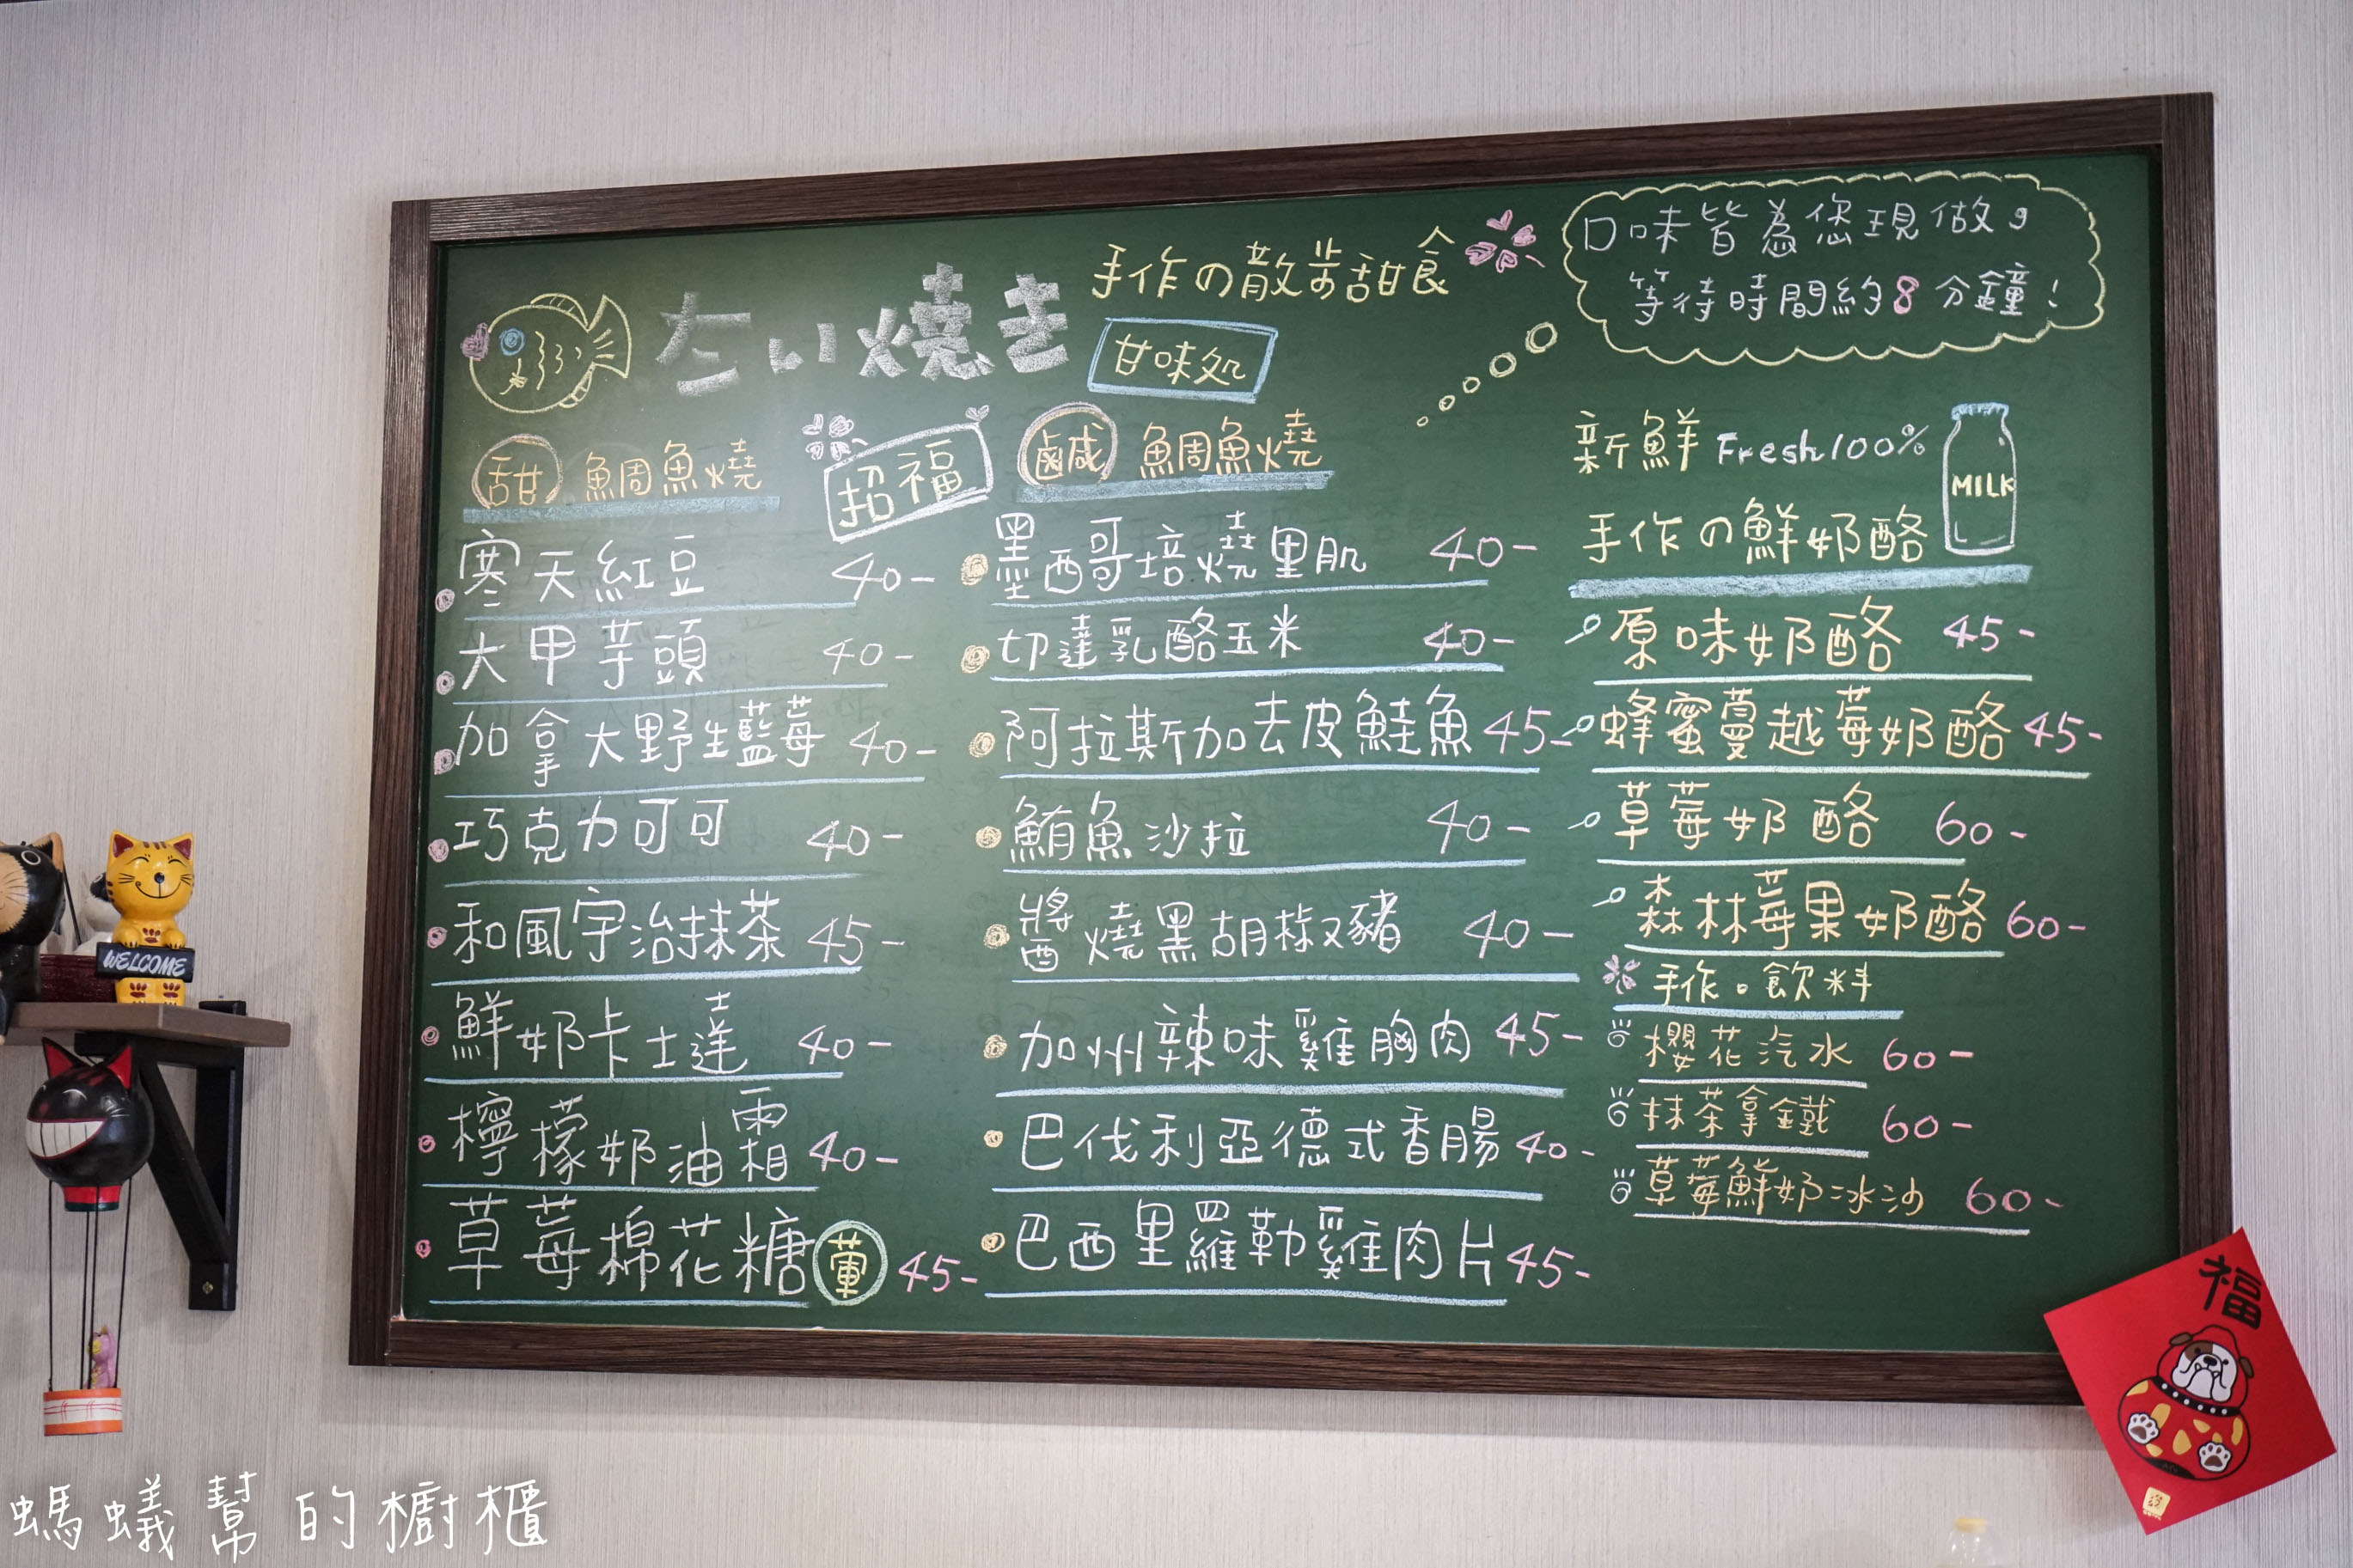 たい燒き
手作の散步甜食
甘味処
口味皆為您現做,
等待時間約8分鐘!
甜 鯛魚燒
招福
寒天紅豆 40-
大甲芋頭 40-
加拿大野生藍莓 40-
巧克力可可 40-
和風宇治抹茶 45-
鮮奶卡士達 40-
檸檬奶油霜 40-
草莓棉花糖 葷 45-
鹹 鯛魚燒
墨西哥培燒里肌 40-
切達乳酪玉米 40-
阿拉斯加去皮鮭魚 45-
鮪魚沙拉 40-
醬燒黑胡椒豬 40-
加州辣味雞胸肉 45-
巴伐利亞德式香腸 40-
巴西里羅勒雞肉片 45-
新鮮 Fresh100%
MILK
手作の鮮奶酪
原味奶酪 45-
蜂蜜蔓越莓奶酪 45-
草莓奶酪 60-
森林莓果奶酪 60-
手作。飲料
櫻花汽水 60-
抹茶拿鐵 60-
草莓鮮奶冰沙 60-
WELCOME
福
螞蟻幫的櫥櫃